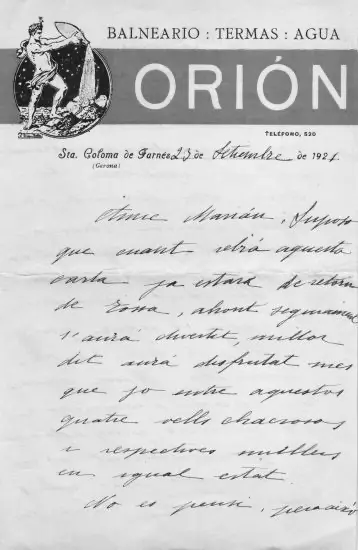 BALNEARIO : TERMAS : AGUA
ORIÓN
TELÉFONO, 520
Sta. Coloma de Farnés 23 de Setiembre de 1921.
(Gerona)
Amic Marián, Suposo
que cuant rebrá aquesta
carta ja estará de retorn
de Tossa, ahont segurament
s'aurá divertit, millor
dit aurá disfrutat mes
que jo entre aquestos
quatre vells chacrosos
i respectives mullers
en igual estat.
No es pensi, pero